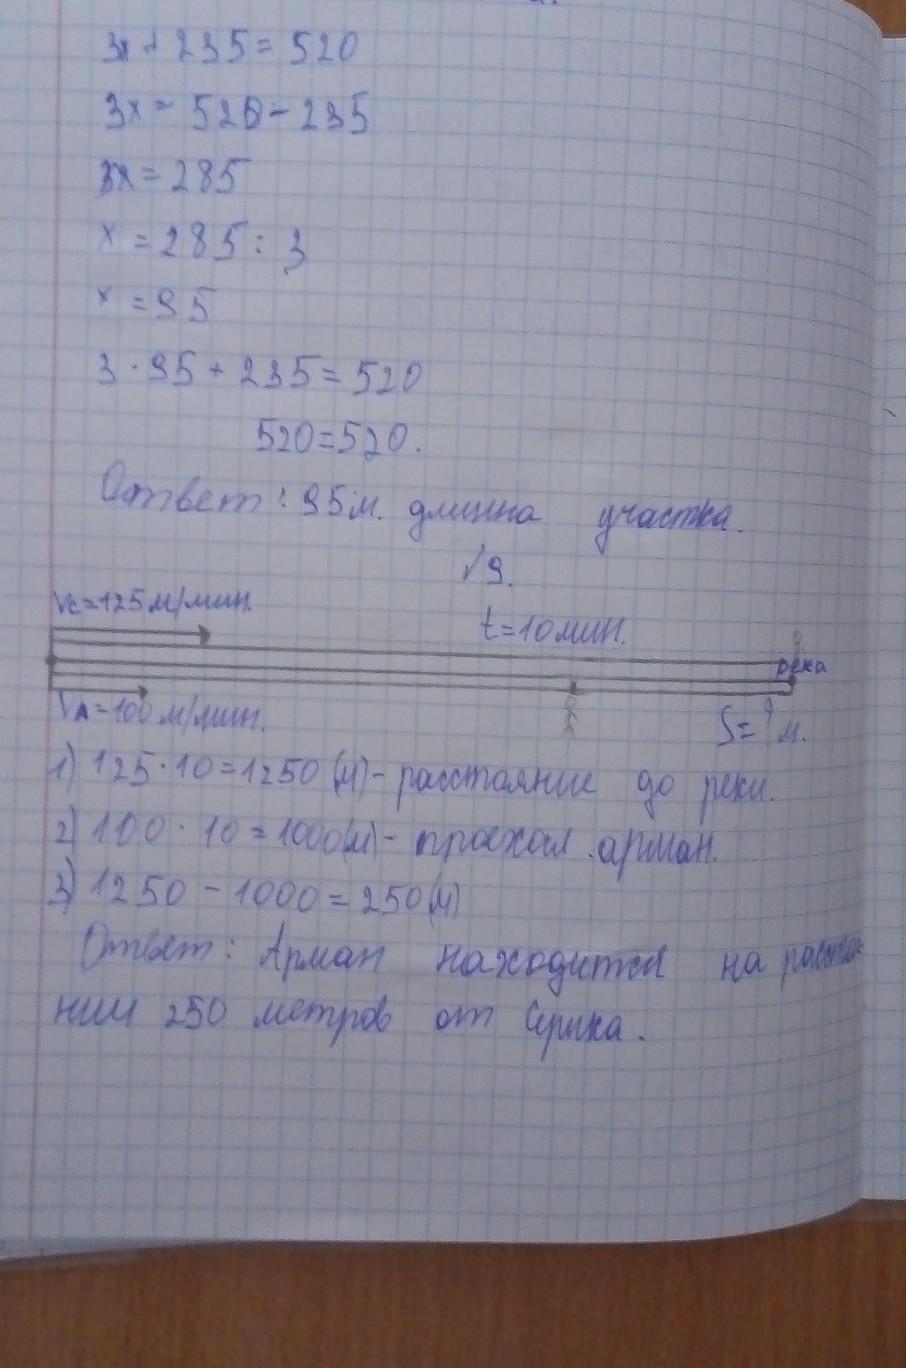 3x + 235 = 520
3x = 520 - 235
3x = 285
x = 285 : 3
x = 95
3 · 95 + 235 = 520
520 = 520.
Ответ: 95 м. длинна участка.
√9.
Vc = 125 м/мин.
t = 10 мин.
река
VA = 100 м/мин.
S = ? м.
1) 125 · 10 = 1250 (м) - расстояние до реки.
2) 100 · 10 = 1000 (м) - проехал арман.
3) 1250 - 1000 = 250 (м)
Ответ: Арман находится на расстоя
нии 250 метров от Серика.